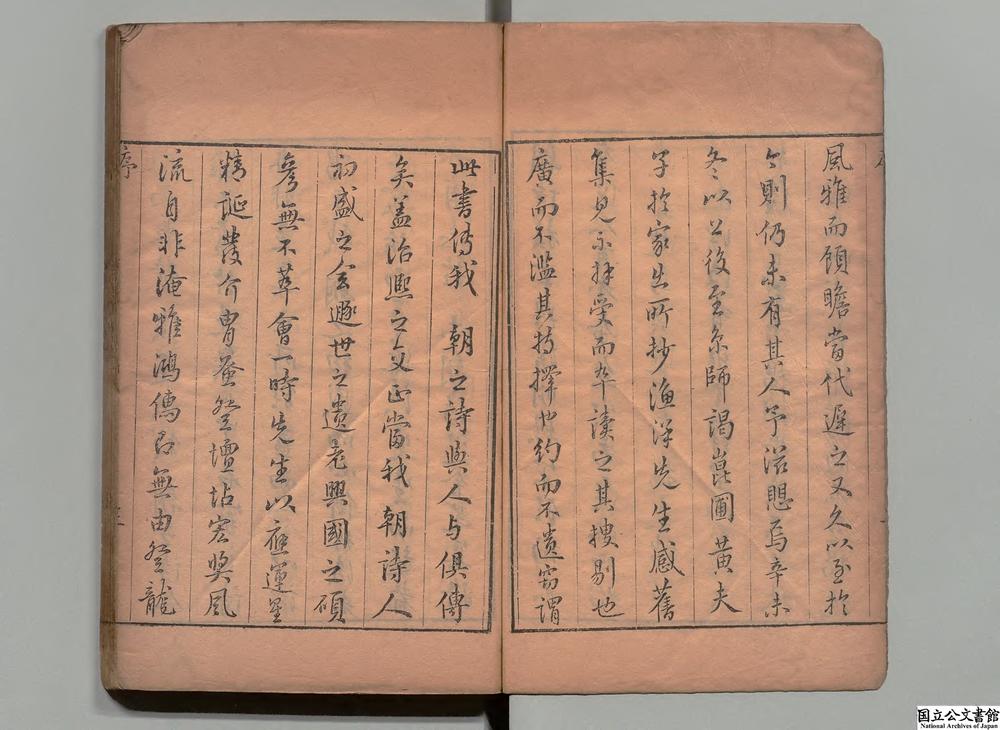 風雅而顧瞻當代遲之又久以至於
今則仍未有其人予滋恧焉辛未
冬以公役至京師謁崑圃黃夫
子於家出所抄漁洋先生感舊
集見示拜受而卒讀之其搜剔也
廣而不濫其持擇也約而不遺竊謂
此書傳我 朝之詩與人与俱傳
矣蓋治熙之文正當我 朝詩人
初盛之會遯世之遺老興國之碩
彥無不萃會一時先生以應運星
精誕發介胄蚤登壇坫宏奬風
流自非淹雅鴻儁即無由登龍
序
国立公文書館
National Archives of Japan